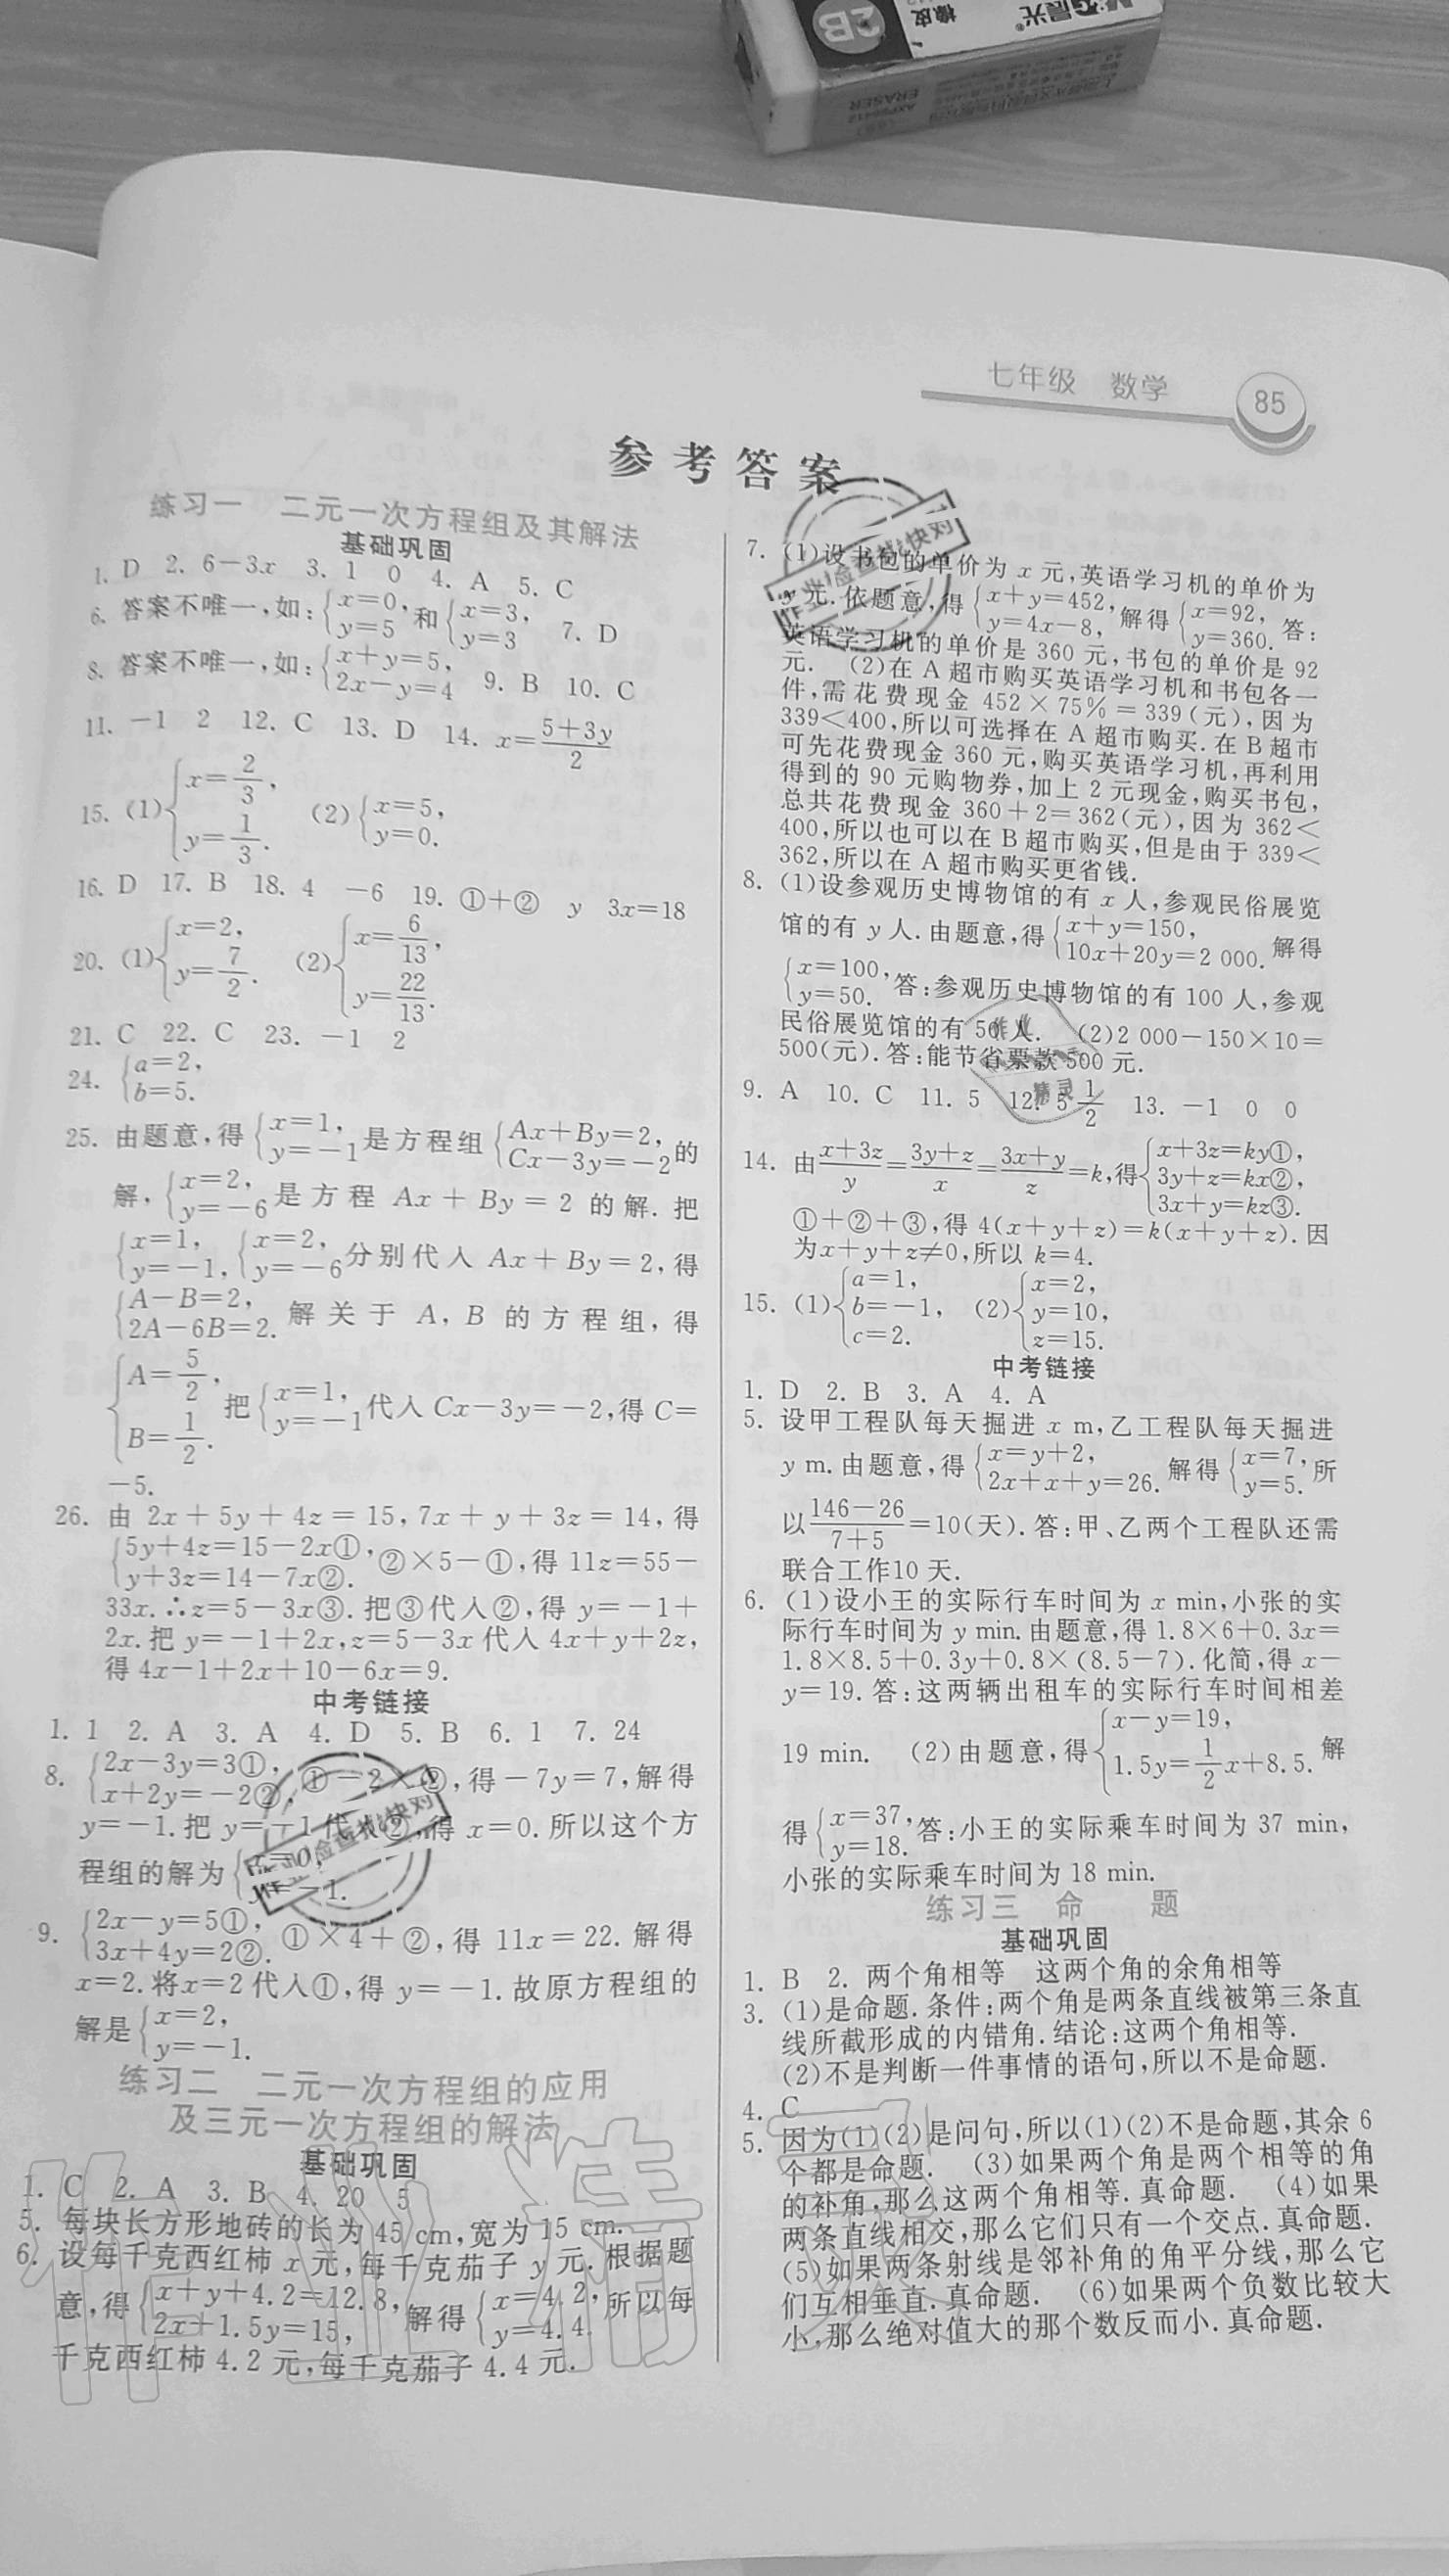 2B
橡皮
晨光
ERASER
AXP96412
七年级 数学 85
参考答案
练习一 二元一次方程组及其解法
基础巩固
1. D 2. 6-3x 3. 1 0 4. A 5. C
6. 答案不唯一,如:{x=0, y=5 和{x=3, y=3 7. D
8. 答案不唯一,如:{x+y=5, 2x-y=4 9. B 10. C
11. -1 2 12. C 13. D 14. x=(5+3y)/2
15. (1){x=2/3, y=1/3. (2){x=5, y=0.
16. D 17. B 18. 4 -6 19. ①+② y 3x=18
20. (1){x=2, y=7/2. (2){x=6/13, y=22/13.
21. C 22. C 23. -1 2
24. {a=2, b=5.
25. 由题意,得{x=1, y=-1是方程组{Ax+By=2, Cx-3y=-2的
解,{x=2, y=-6是方程 Ax+By=2 的解.把
{x=1, y=-1,{x=2, y=-6分别代入 Ax+By=2,得
{A-B=2, 2A-6B=2. 解关于 A,B 的方程组,得
{A=5/2, B=1/2. 把{x=1, y=-1代入 Cx-3y=-2,得 C=
-5.
26. 由 2x+5y+4z=15,7x+y+3z=14,得
{5y+4z=15-2x①, y+3z=14-7x②. ②×5-①,得 11z=55-
33x.∴z=5-3x③.把③代入②,得 y=-1+
2x.把 y=-1+2x,z=5-3x 代入 4x+y+2z,
得 4x-1+2x+10-6x=9.
中考链接
1. 1 2. A 3. A 4. D 5. B 6. 1 7. 24
8. {2x-3y=3①, x+2y=-2②, ①-2×②,得-7y=7,解得
y=-1.把 y=-1代入②,得 x=0.所以这个方
程组的解为{x=0, y=-1.
9. {2x-y=5①, 3x+4y=2②. ①×4+②,得 11x=22.解得
x=2.将x=2代入①,得 y=-1.故原方程组的
解是{x=2, y=-1.
练习二 二元一次方程组的应用
及三元一次方程组的解法
基础巩固
1. C 2. A 3. B 4. 20 5
5. 每块长方形地砖的长为 45 cm,宽为 15 cm.
6. 设每千克西红柿 x 元,每千克茄子 y 元.根据题
意,得{x+y+4.2=12.8, 2x+1.5y=15, 解得{x=4.2, y=4.4. 所以每
千克西红柿 4.2 元,每千克茄子 4.4 元.
7. (1)设书包的单价为 x 元,英语学习机的单价为
y 元.依题意,得{x+y=452, y=4x-8, 解得{x=92, y=360. 答:
英语学习机的单价是 360 元,书包的单价是 92
元. (2)在 A 超市购买英语学习机和书包各一
件,需花费现金 452×75%=339(元),因为
339<400,所以可选择在 A 超市购买.在 B 超市
可先花费现金 360 元,购买英语学习机,再利用
得到的 90 元购物券,加上 2 元现金,购买书包,
总共花费现金 360+2=362(元),因为 362<
400,所以也可以在 B 超市购买,但是由于 339<
362,所以在 A 超市购买更省钱.
8. (1)设参观历史博物馆的有 x 人,参观民俗展览
馆的有 y 人.由题意,得{x+y=150, 10x+20y=2 000. 解得
{x=100, y=50. 答:参观历史博物馆的有 100 人,参观
民俗展览馆的有 50 人. (2)2 000-150×10=
500(元).答:能节省票款 500 元.
9. A 10. C 11. 5 12. 5 1/2 13. -1 0 0
14. 由(x+3z)/y=(3y+z)/x=(3x+y)/z=k,得{x+3z=ky①, 3y+z=kx②, 3x+y=kz③.
①+②+③,得 4(x+y+z)=k(x+y+z).因
为x+y+z≠0,所以 k=4.
15. (1){a=1, b=-1, c=2. (2){x=2, y=10, z=15.
中考链接
1. D 2. B 3. A 4. A
5. 设甲工程队每天掘进 x m,乙工程队每天掘进
y m.由题意,得{x=y+2, 2x+x+y=26. 解得{x=7, y=5. 所
以(146-26)/(7+5)=10(天).答:甲、乙两个工程队还需
联合工作10 天.
6. (1)设小王的实际行车时间为 x min,小张的实
际行车时间为 y min.由题意,得 1.8×6+0.3x=
1.8×8.5+0.3y+0.8×(8.5-7).化简,得 x-
y=19.答:这两辆出租车的实际行车时间相差
19 min. (2)由题意,得{x-y=19, 1.5y=1/2x+8.5. 解
得{x=37, y=18. 答:小王的实际乘车时间为 37 min,
小张的实际乘车时间为 18 min.
练习三 命 题
基础巩固
1. B 2. 两个角相等 这两个角的余角相等
3. (1)是命题.条件:两个角是两条直线被第三条直
线所截形成的内错角.结论:这两个角相等.
(2)不是判断一件事情的语句,所以不是命题.
4. C
5. 因为(1)(2)是问句,所以(1)(2)不是命题,其余 6
个都是命题. (3)如果两个角是两个相等的角
的补角,那么这两个角相等.真命题. (4)如果
两条直线相交,那么它们只有一个交点.真命题.
(5)如果两条射线是邻补角的角平分线,那么它
们互相垂直.真命题. (6)如果两个负数比较大
小,那么绝对值大的那个数反而小.真命题.